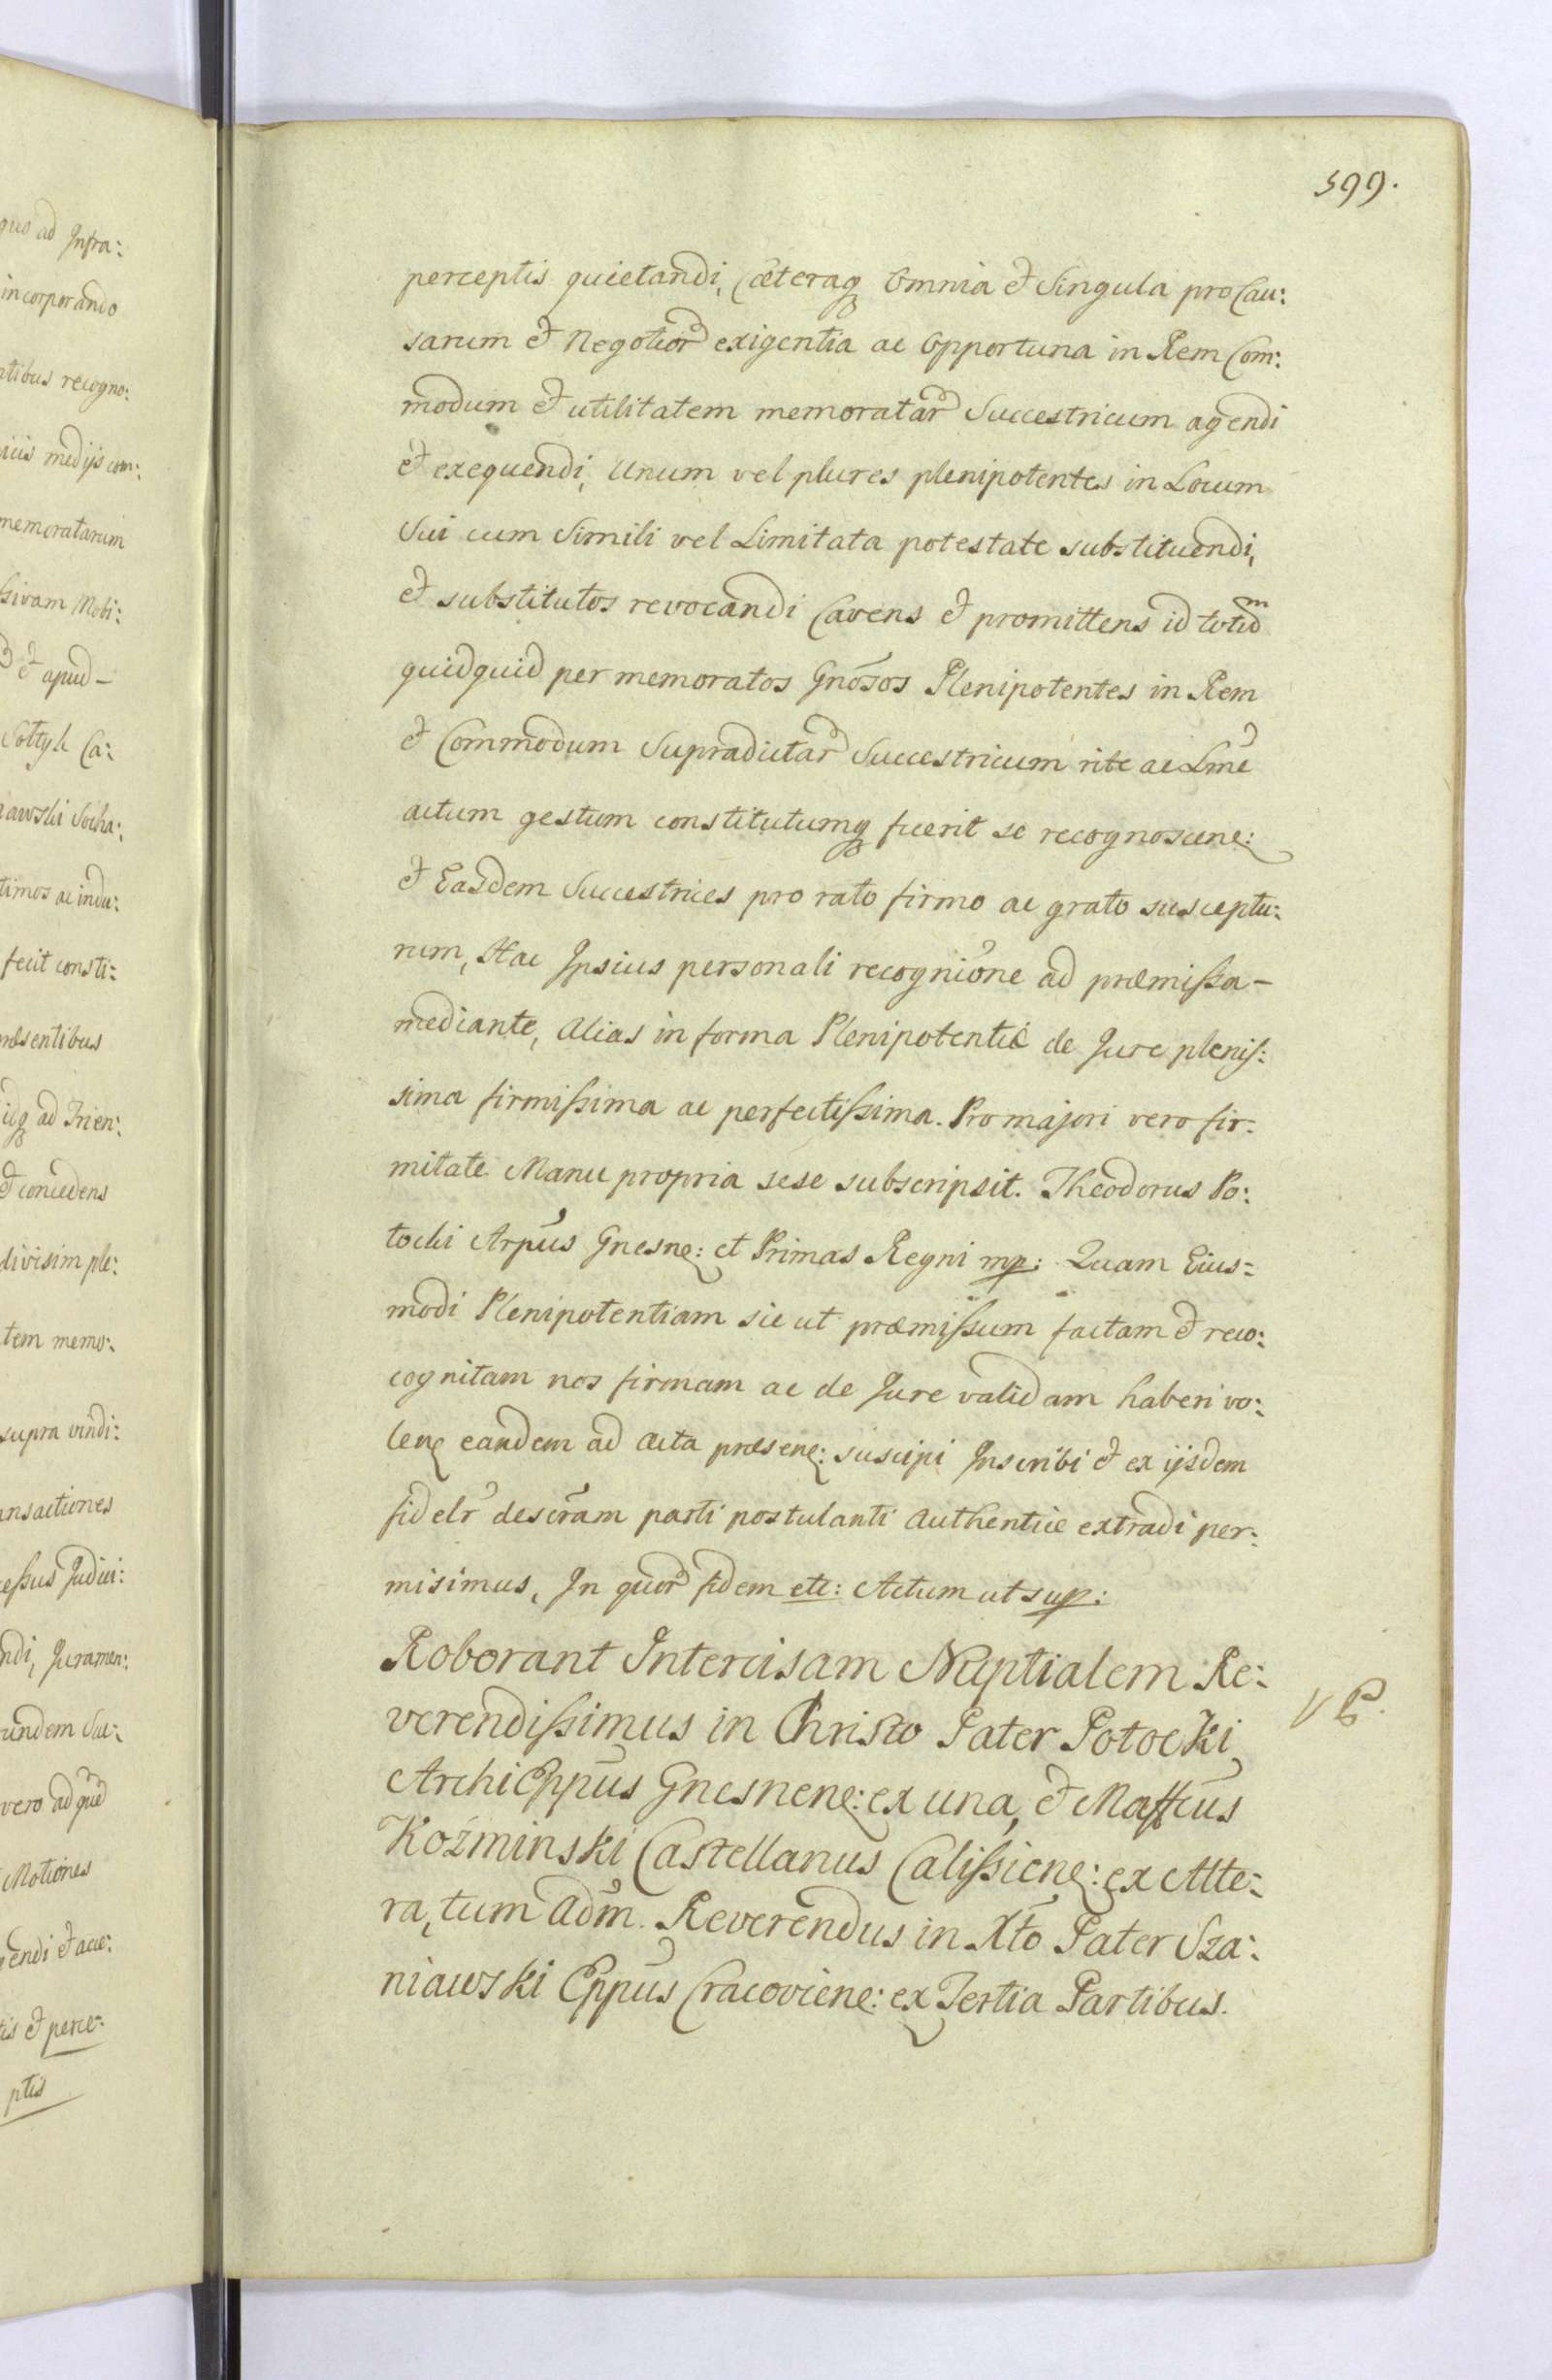 599.
perceptis quietandi, Cæteraq́ Omnia et Singula pro Cau:
sarum et Negotior exigentia ac Opportuna in Rem Com:
modum et utilitatem memoratar Succestricum agendi
et exequendi, Unum vel plures plenipotentes in Locum
Sui cum Simili vel Limitata potestate substituendi,
et substitutos revocandi Cavens et promittens id totid
quidquid per memoratos Gnosos Plenipotentes in Rem
et Commodum Supradictar Succestricum rite ac Lme
actum gestum constitutumq́ fuerit se recognoscene:
et Easdem Succestrices pro rato firmo ac grato susceptu:
rum, Hac Ipsius personali recognione ad præmissa –
mediante, Alias in forma Plenipotentiæ de Jure plenis:
sima firmissima ac perfectissima. Pro majori vero fir:
mitate Manu propria sese subscripsit. Theodorus Po:
tocki Arpus Gnesne: et Primas Regni mp: Quam Eius=
modi Plenipotentiam sic ut præmissum factam et reco:
cognitam nos firmam ac de Jure validam haberi vo:
lene eandem ad Acta præsene: suscipi Inscribi et ex ijsdem
fidelr descram parti postulanti Authentice extradi per:
misimus, In quor fidem etc: Actum ut sup:
Roborant Intercisam Nuptialem Re:
verendissimus in Christo Pater Potocki
ArchiEppus Gnesnene: ex una, et Maffcus
Koźminski Castellanus Calissiene: ex Alte:
ra, tum Adm. Reverendus in Xto Pater Sza:
niawski Eppus Cracoviene: ex Tertia Partibus.
quo ad Infra:
incorporando
ntibus recogno:
icis medijs com:
memoratarum
ssivam Mobi:
et apud –
Soltyk Ca:
awski Socha:
timos ac indu:
fecit consti:
ræsentibus
idq́ ad Trien:
et concedens
divisim ple:
tem memo:
supra vindi:
ansactiones
cessus Judici:
ndi, Juramen:
undem Suc:
vero ad
Motiones
gendi et acce:
tis et perce:
ptis